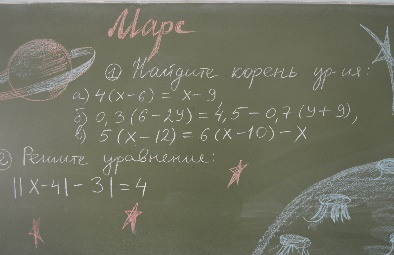 Марс
① Найдите корень ур-ия:
а) 4(x-6) = x-9,
б) 0,3(6-2y) = 4,5-0,7(y+9),
в) 5(x-12) = 6(x-10)-x
② Решите уравнение:
||x-4|-3|=4